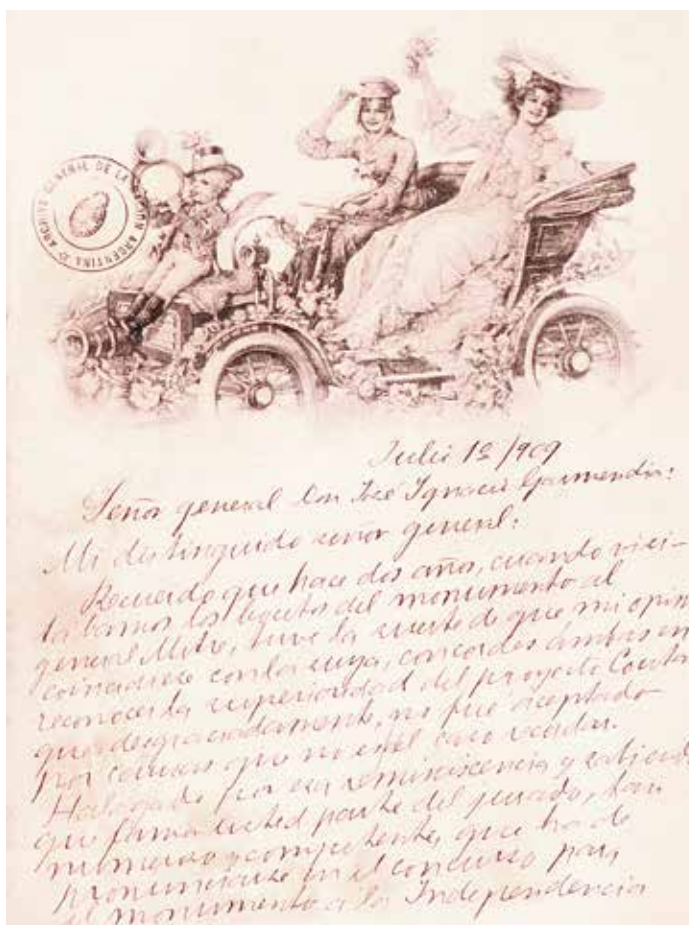 ARCHIVO GENERAL DE LA NACION ARGENTINA
Julio 12/909
Señor general Don José Ignacio Garmendia:
Mi distinguido señor general:
Recuerdo que hace dos años, cuando visi-
tabamos los bocetos del monumento al
general Mitre, tuve la suerte de que mi opini
coincidiese con la suya, concordes ambas en
reconocer la superioridad del proyecto Couta
que desgraciadamente, no fue aceptado
por causas que no es el caso recordar.
Halagado por esa reminiscencia y sabiendo
que forma usted parte del jurado, tan
numeroso y competente, que ha de
pronunciarse en el concurso para
el monumento a la Independencia